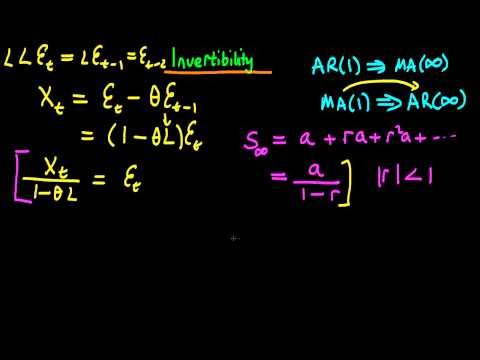 LLεₜ = Lεₜ₋₁ = εₜ₋₂ Invertibility
Xₜ = εₜ - θεₜ₋₁
= (1 - θL)εₜ
Xₜ / (1 - θL) = εₜ
AR(1) ⇒ MA(∞)
MA(1) ⇒ AR(∞)
S∞ = a + ra + r²a + ....
= a / (1 - r) |r| < 1